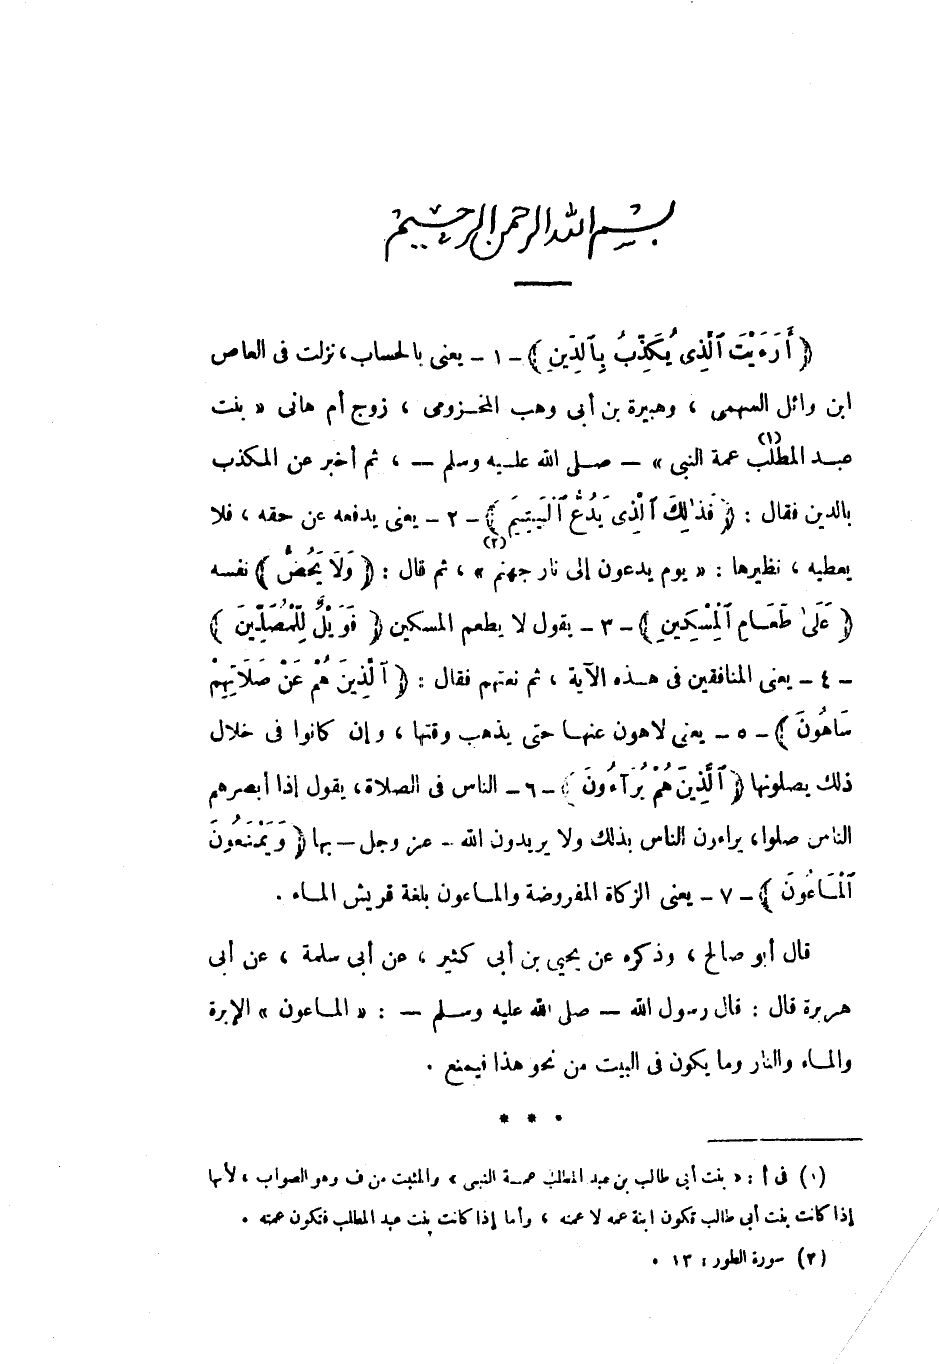 بسم الله الرحمن الرحيم
﴿أَرَءَيْتَ ٱلَّذِى يُكَذِّبُ بِٱلدِّينِ﴾ ـ ١ ـ يعنى بالحساب، نزلت فى العاص
ابن وائل السهمى ، وهبيرة بن أبى وهب المخزومى ، زوج أم هانى « بنت
عبد المطلب(١) عمة النبى » — صلى الله عليه وسلم — ، ثم أخبر عن المكذب
بالدين فقال : ﴿فَذَٰلِكَ ٱلَّذِى يَدُعُّ ٱلْيَتِيمَ﴾ ـ ٢ ـ يعنى يدفعه عن حقه ، فلا
يعطيه ، نظيرها : « يوم يدعون إلى نار جهنم(٢) » ، ثم قال : ﴿وَلَا يَحُضُّ﴾ نفسه
﴿عَلَىٰ طَعَامِ ٱلْمِسْكِينِ﴾ ـ ٣ ـ يقول لا يطعم المسكين ﴿فَوَيْلٌ لِّلْمُصَلِّينَ﴾
ـ ٤ ـ يعنى المنافقين فى هذه الآية ، ثم نعتهم فقال : ﴿ٱلَّذِينَ هُمْ عَنْ صَلَاتِهِمْ
سَاهُونَ﴾ ـ ٥ ـ يعنى لاهون عنها حتى يذهب وقتها ، وإن كانوا فى خلال
ذلك يصلونها ﴿ٱلَّذِينَ هُمْ يُرَآءُونَ﴾ ـ ٦ ـ الناس فى الصلاة، يقول إذا أبصرهم
الناس صلوا، يراءون الناس بذلك ولا يريدون الله ـ عز وجل — بها ﴿وَيَمْنَعُونَ
ٱلْمَاعُونَ﴾ ـ ٧ ـ يعنى الزكاة المفروضة والماعون بلغة قريش الماء .
قال أبو صالح ، وذكره عن يحيى بن أبى كثير ، عن أبى سلمة ، عن أبى
هريرة قال : قال رسول الله — صلى الله عليه وسلم — : « الماعون » الإبرة
والماء والنار وما يكون فى البيت من نحو هذا فيمنع .
* * *
(١) فى أ : « بنت أبى طالب بن عبد المطلب عمة النبى » والمثبت من ف وهو الصواب ، لأنها
إذا كانت بنت أبى طالب تكون ابنة عمه لا عمته ، وأما إذا كانت بنت عبد المطلب فتكون عمته .
(٢) سورة الطور : ١٣ .